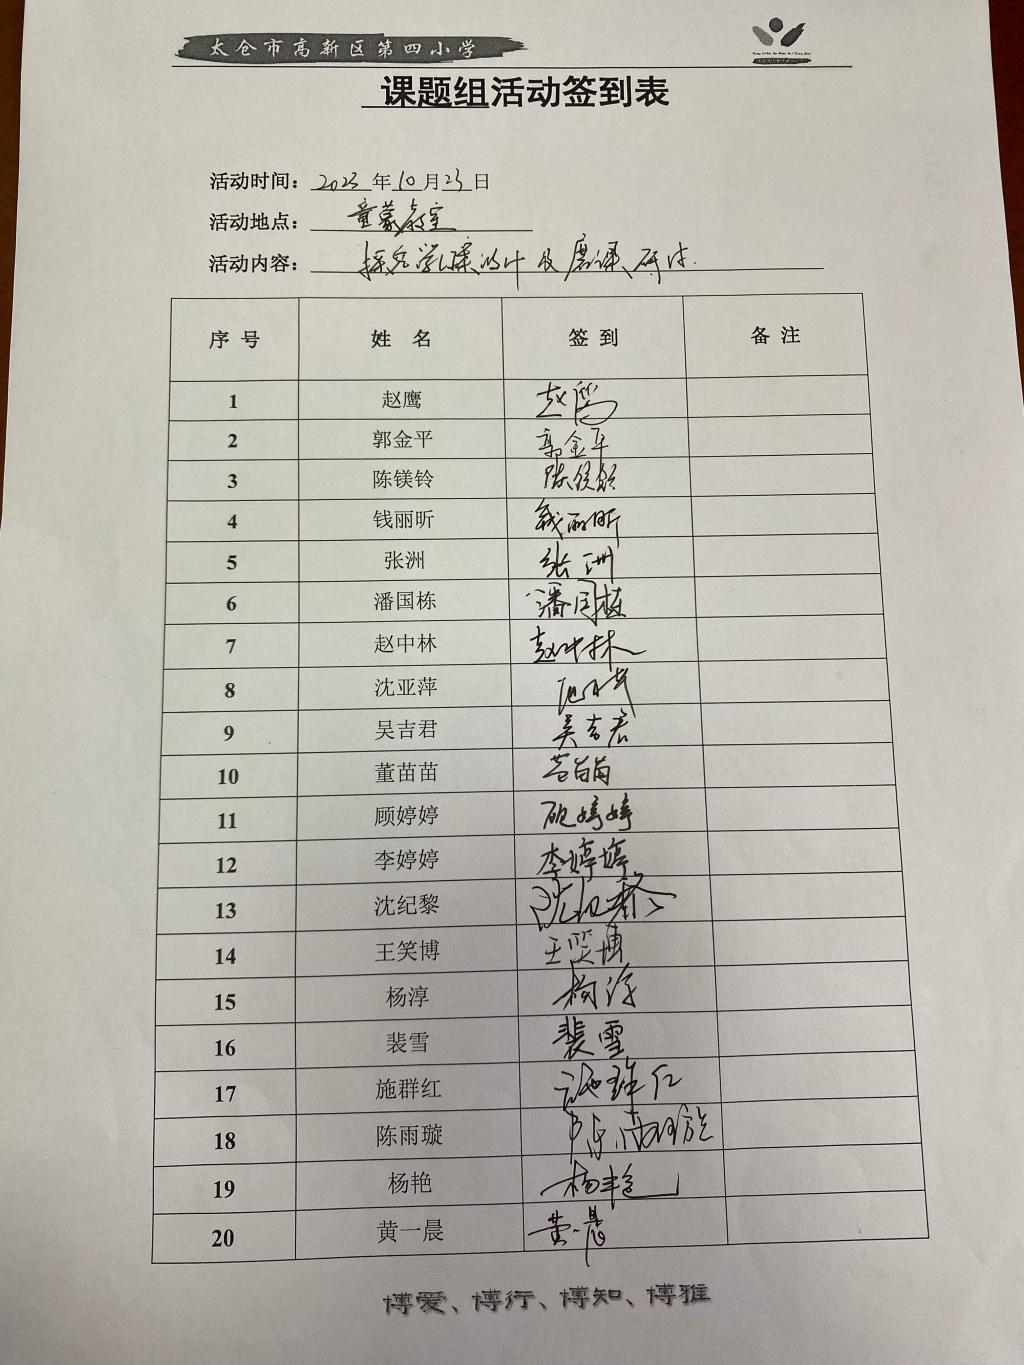 太仓市高新区第四小学
课题组活动签到表
活动时间：2023年10月23日
活动地点：童蒙教室
活动内容：探究学案设计及磨课、研讨.
序号 姓名 签到 备注
1 赵鹰 赵鹰
2 郭金平 郭金平
3 陈镁铃 陈镁铃
4 钱丽昕 钱丽昕
5 张洲 张洲
6 潘国栋 潘国栋
7 赵中林 赵中林
8 沈亚萍
9 吴吉君 吴吉君
10 董苗苗 董苗苗
11 顾婷婷 顾婷婷
12 李婷婷 李婷婷
13 沈纪黎 沈纪黎
14 王笑博 王笑博
15 杨淳 杨淳
16 裴雪 裴雪
17 施群红 施群红
18 陈雨璇 陈雨璇
19 杨艳 杨艳
20 黄一晨 黄一晨
博爱、博行、博知、博雅